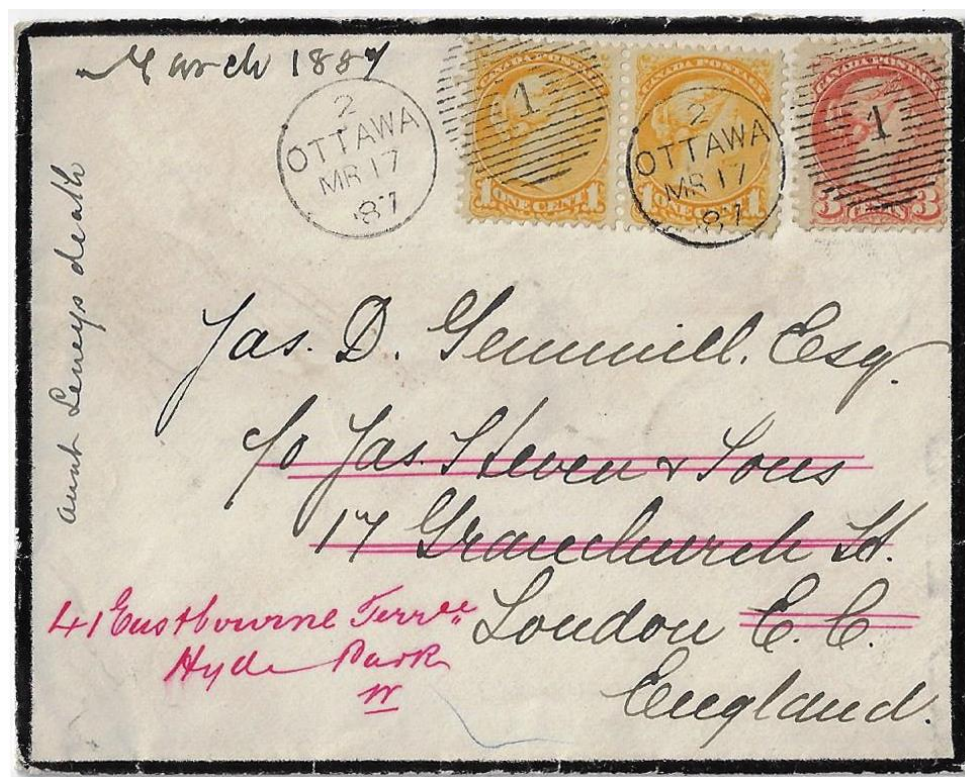 March 1887
2
OTTAWA
MR 17
87
CANADA POSTAGE
1
1 ONE CENT 1
CANADA POSTAGE
2
OTTAWA
MR 17
87
1 ONE CENT 1
CANADA POSTAGE
1
3 CENTS 3
aunt Leneys death
Jas. D. Gemmill. Esq.
c/o Jas. Steven & Sons
17 Gracechurch St.
London E. C.
England.
41 Eastbourne Terrce
Hyde Park
W